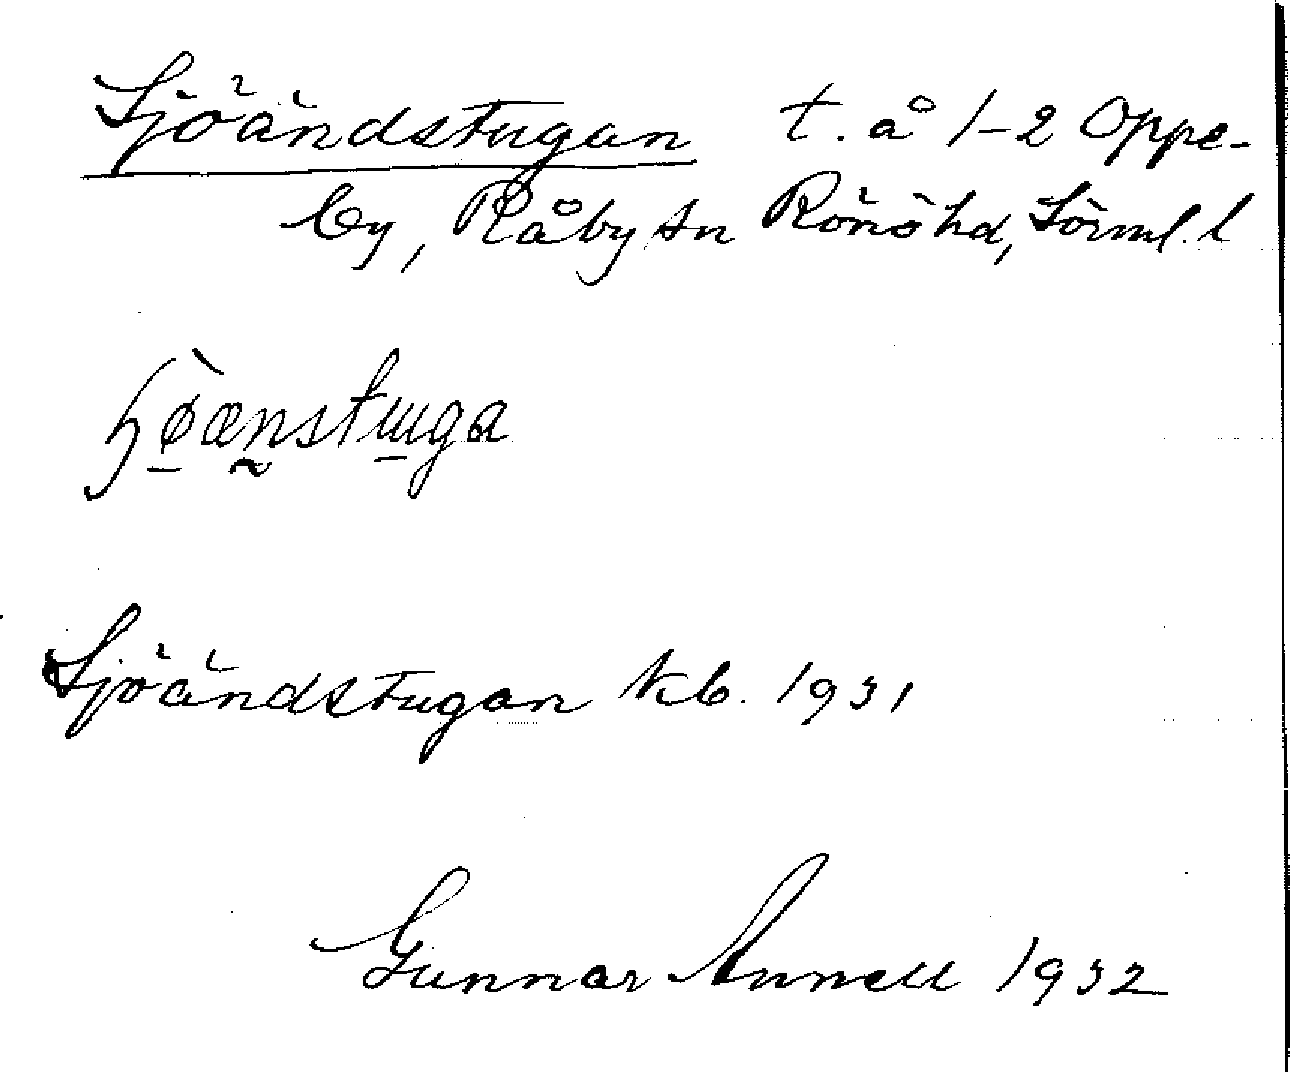 Sjöändstugan t. å 1-2 Oppe-
by, Råby sn Rönö hd, Sörml. l
Sjöändstugan kb. 1931
Gunnar Annell 1932